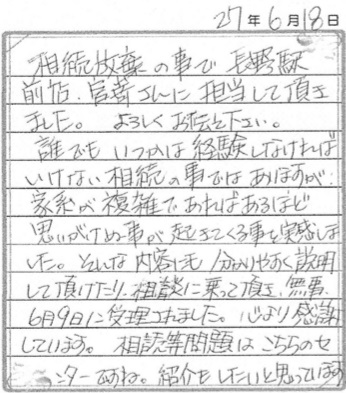 27年6月18日
相続放棄の事で 長野駅
前店.宮嵜さんに担当して頂き
ました。 よろしくお伝え下さい。
誰でも いつかは 経験しなければ
いけない 相続の事ではありますが、
家系が 複雑であればあるほど
思いがけぬ事が 起きてくる事を実感しま
した。 そんな内容にも 分かりやすく説明
して頂けたり、相談に乗って頂き、無事.
6月9日に受理されました。 心より感謝
しています。 相続等問題は こちらのセ
ンターですね。紹介もしたいと思っています